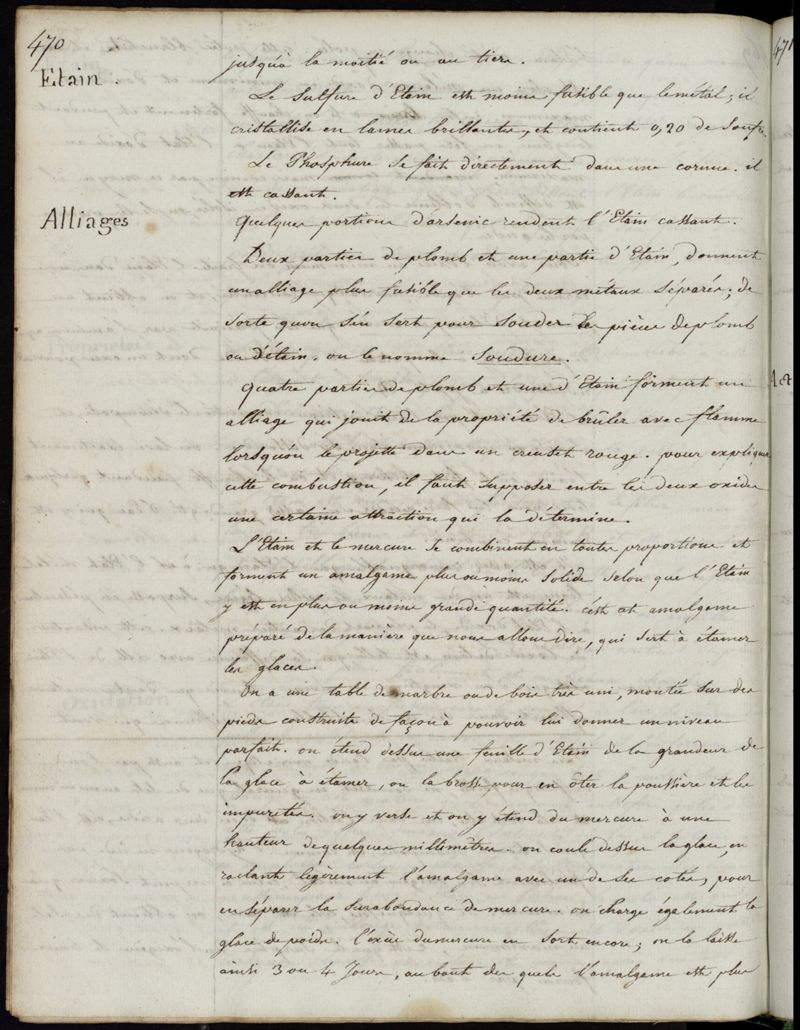 470
Etain.
jusqu'à la moitié ou au tiers.
Le Sulfure d'Etain est moins fusible que le métal; il
cristallise en lames brillantes, et contient 0,20 de Soufre.
Le Phosphure se fait directement dans une cornue. il
est cassant.
Alliages
quelques portions d'arsenic rendent l'Etain cassant.
Deux parties de plomb et une partie d'Etain, donnent
un alliage plus fusible que les deux métaux séparés; de
sorte qu'on s'en sert pour souder les pièces de plomb
ou d'étain. on le nomme Soudure.
quatre parties de plomb et une d'Etain forment un
alliage qui jouit de la propriété de brûler avec flamme
lorsqu'on le projette dans un creuset rouge. pour expliquer
cette combustion, il faut supposer entre les deux oxides
une certaine attraction qui la détermine.
L'Etain et le mercure se combinent en toutes proportions et
forment un amalgame plus ou moins solide selon que l'Etain
y est en plus ou moins grande quantité. c'est cet amalgame
préparé de la manière que nous allons dire, qui sert à étamer
les glaces.
On a une table de marbre ou de bois très uni, montée sur des
pieds construits de façon à pouvoir lui donner un niveau
parfait. on étend dessus une feuille d'Etain de la grandeur de
la glace à étamer, on la brosse pour en ôter la poussière et les
impuretés. on y verse et on y étend du mercure à une
hauteur de quelques millimètres. on coule dessus la glace, en
raclant légèrement l'amalgame avec un de ses cotés, pour
en séparer la surabondance de mercure. on charge également la
glace de poids. l'excès du mercure en sort encore; on la laisse
ainsi 3 ou 4 Jours, au bout des quels l'amalgame est plus
471